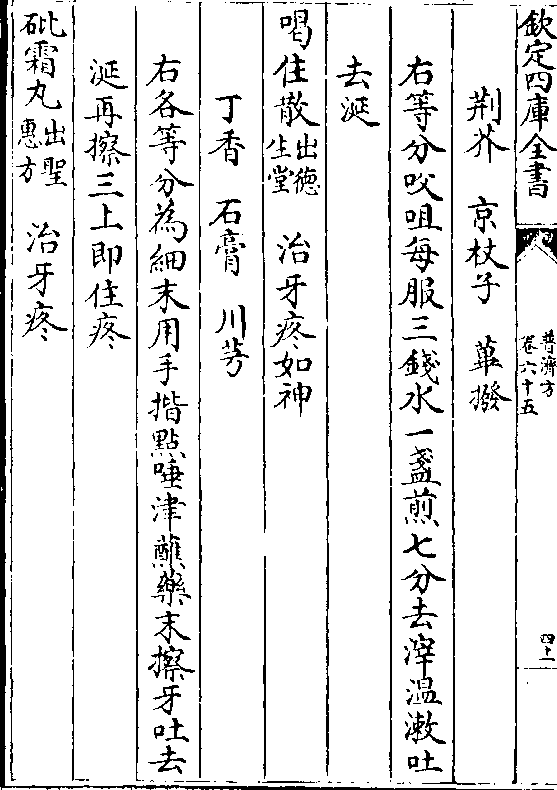 欽定四庫全書
普濟方
卷六十五
四十一
荆芥　京杖子　蓽撥
右等分㕮咀每服三錢水一盞煎七分去滓溫漱吐
去涎
喝住散出德生堂　治牙疼如神
丁香　石膏　川芎
右各等分為細末用手指點唾津蘸藥末擦牙吐去
涎再擦三上即住疼
砒霜丸出聖惠方　治牙疼